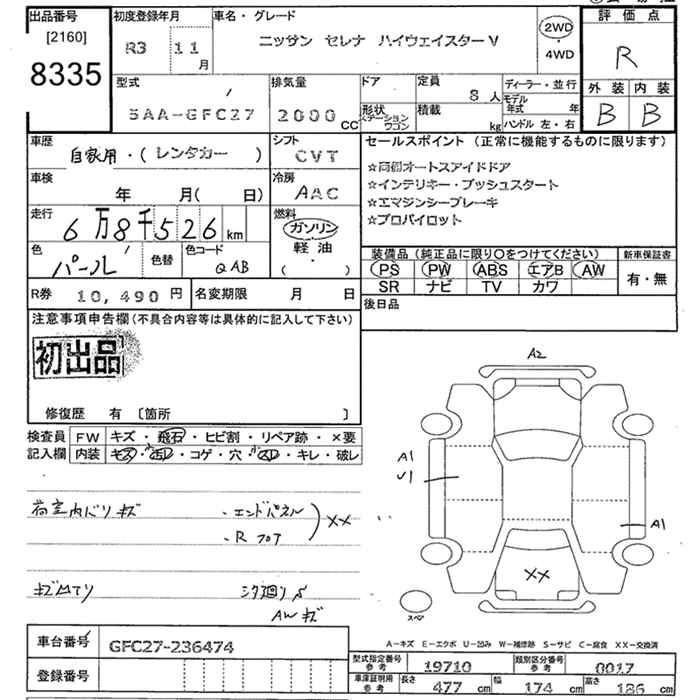 出品番号 初度登録年月 車名・グレード 評価点
[2160] R3 11月 ニッサン セレナ ハイウェイスターV 2WD R
8335 4WD
型式 排気量 ドア 定員 ディーラー・並行 外装 内装
5AA-GFC27 2000cc 8人 モデル年式 年 B B
形状 ステーションワゴン 積載 kg ハンドル 左・右
車歴 自家用・(レンタカー) シフト CVT セールスポイント (正常に機能するものに限ります)
☆両側オートスアイドドア
車検 年 月( 日) 冷房 AAC ☆インテリキー・プッシュスタート
☆エマジンシーブレーキ
走行 6万8千526km 燃料 ガソリン ☆プロパイロット
軽油
( )
色 パール 色替 色コード QAB 装備品 (純正品に限り○をつけてください) 新車保証書
PS PW ABS エアB AW 有・無
SR ナビ TV カワ
R券 10,490円 名変期限 月 日 後日品
注意事項申告欄(不具合内容等は具体的に記入して下さい)
初出品
修復歴 有 〔箇所 〕
検査員記入欄 FW キズ・飛石・ヒビ割・リペア跡・×要
内装 キズ・汚レ・コゲ・穴・スレ・キレ・破レ
荷室内バリキズ ・エンドパネル
・R フロア XX
キズ凹アリ シタ廻りS
AWキズ
A2
A1
U1
A1
XX
スペア
A-キズ E-エクボ U-凹み W-補修跡 S-サビ C-腐食 XX-交換済
車台番号 GFC27-236474 型式指定番号 参考 19710 類別区分番号 参考 0017
登録番号 車庫証明用 参考 長さ 477cm 幅 174cm 高さ 186cm